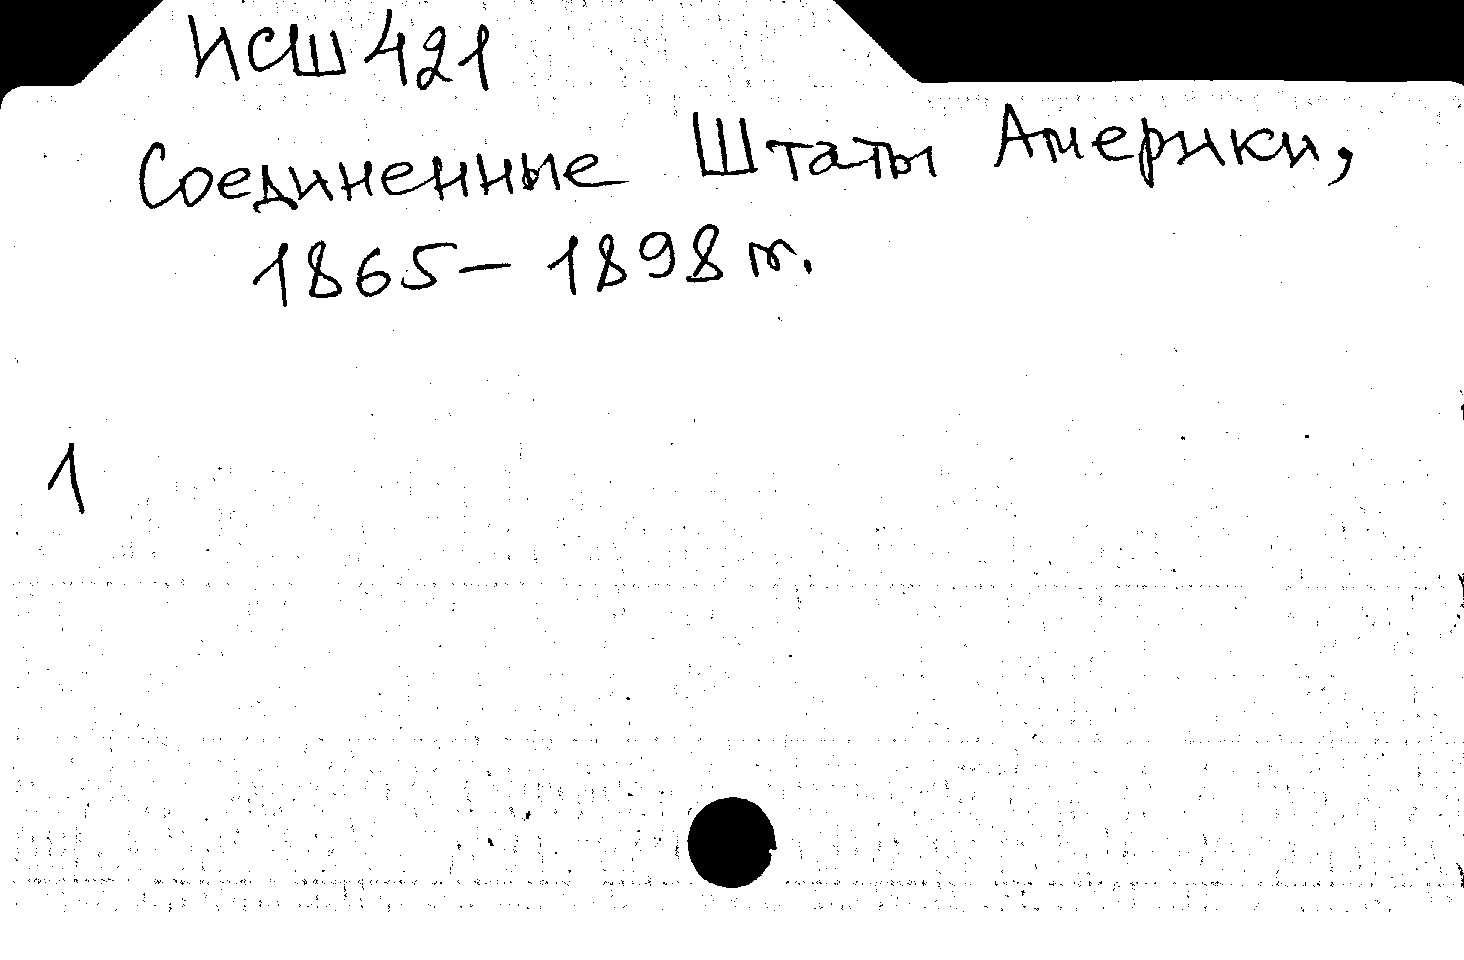 ИСШ 421
Соединенные Штаты Америки,
1865 – 1898 гг.
1